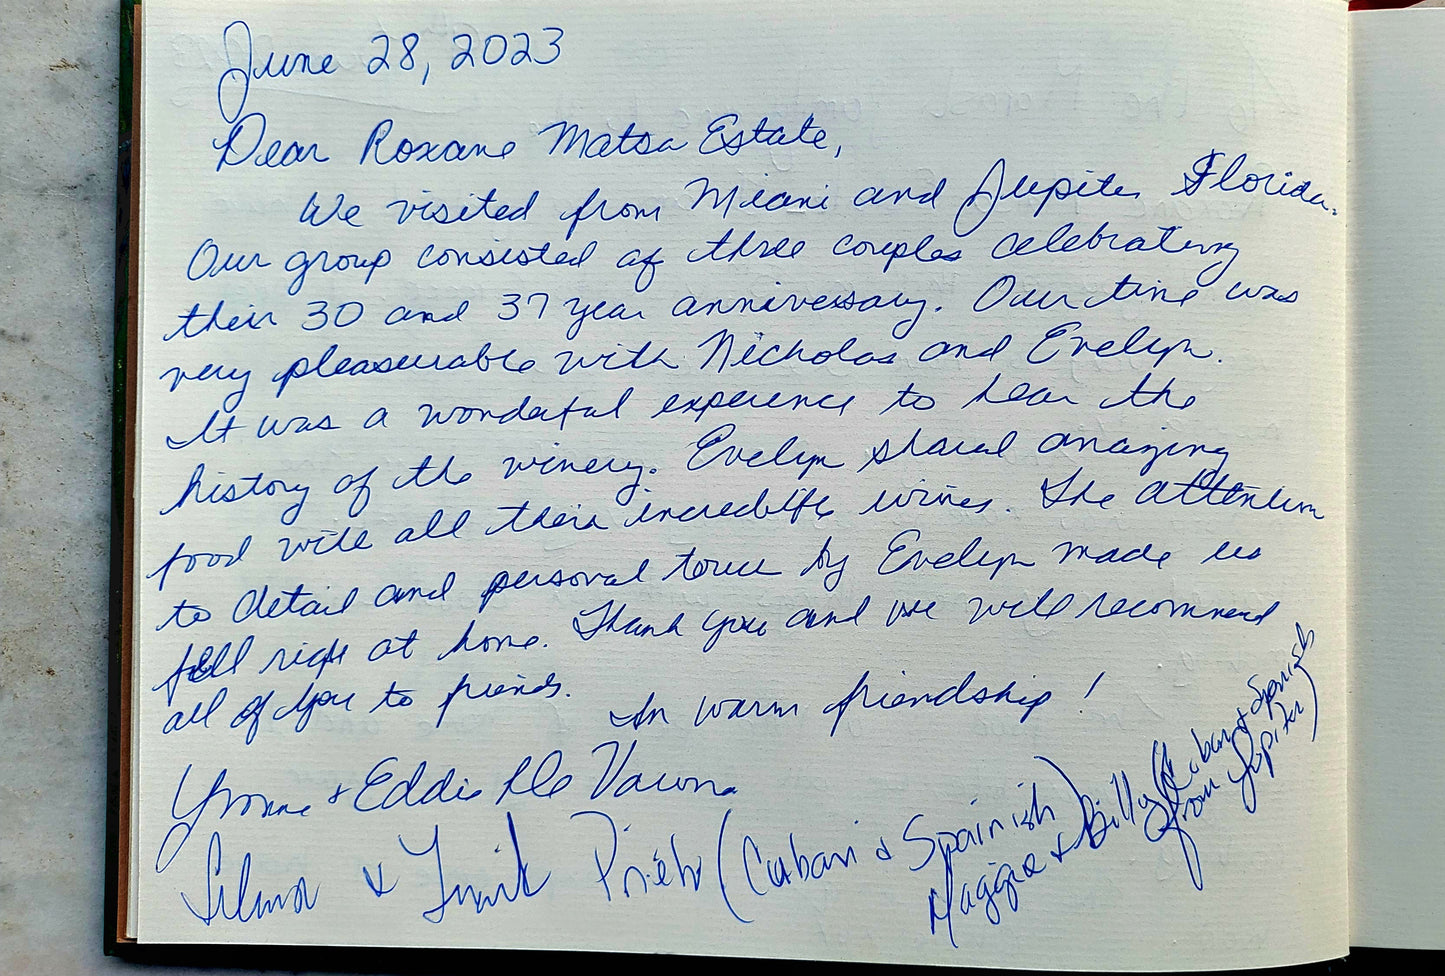 June 28, 2023
Dear Roxane Matsa Estate,
We visited from Miami and Jupiter Florida.
Our group consisted of three couples celebrating
their 30 and 37 year anniversary. Our time was
very pleasurable with Nicholas and Evelyn.
It was a wonderful experence to hear the
history of the winery. Evelyn shared amazing
food with all their incredible wines. The attention
to detail and personal tour by Evelyn made us
fell right at home. Thank you and we will recommend
all of you to friends.
In warm friendship!
Yvonne + Eddie De Varona
& (Cuban & Spainish)
Maggie & Billy (Cuban & Spanish
from Jupiter)